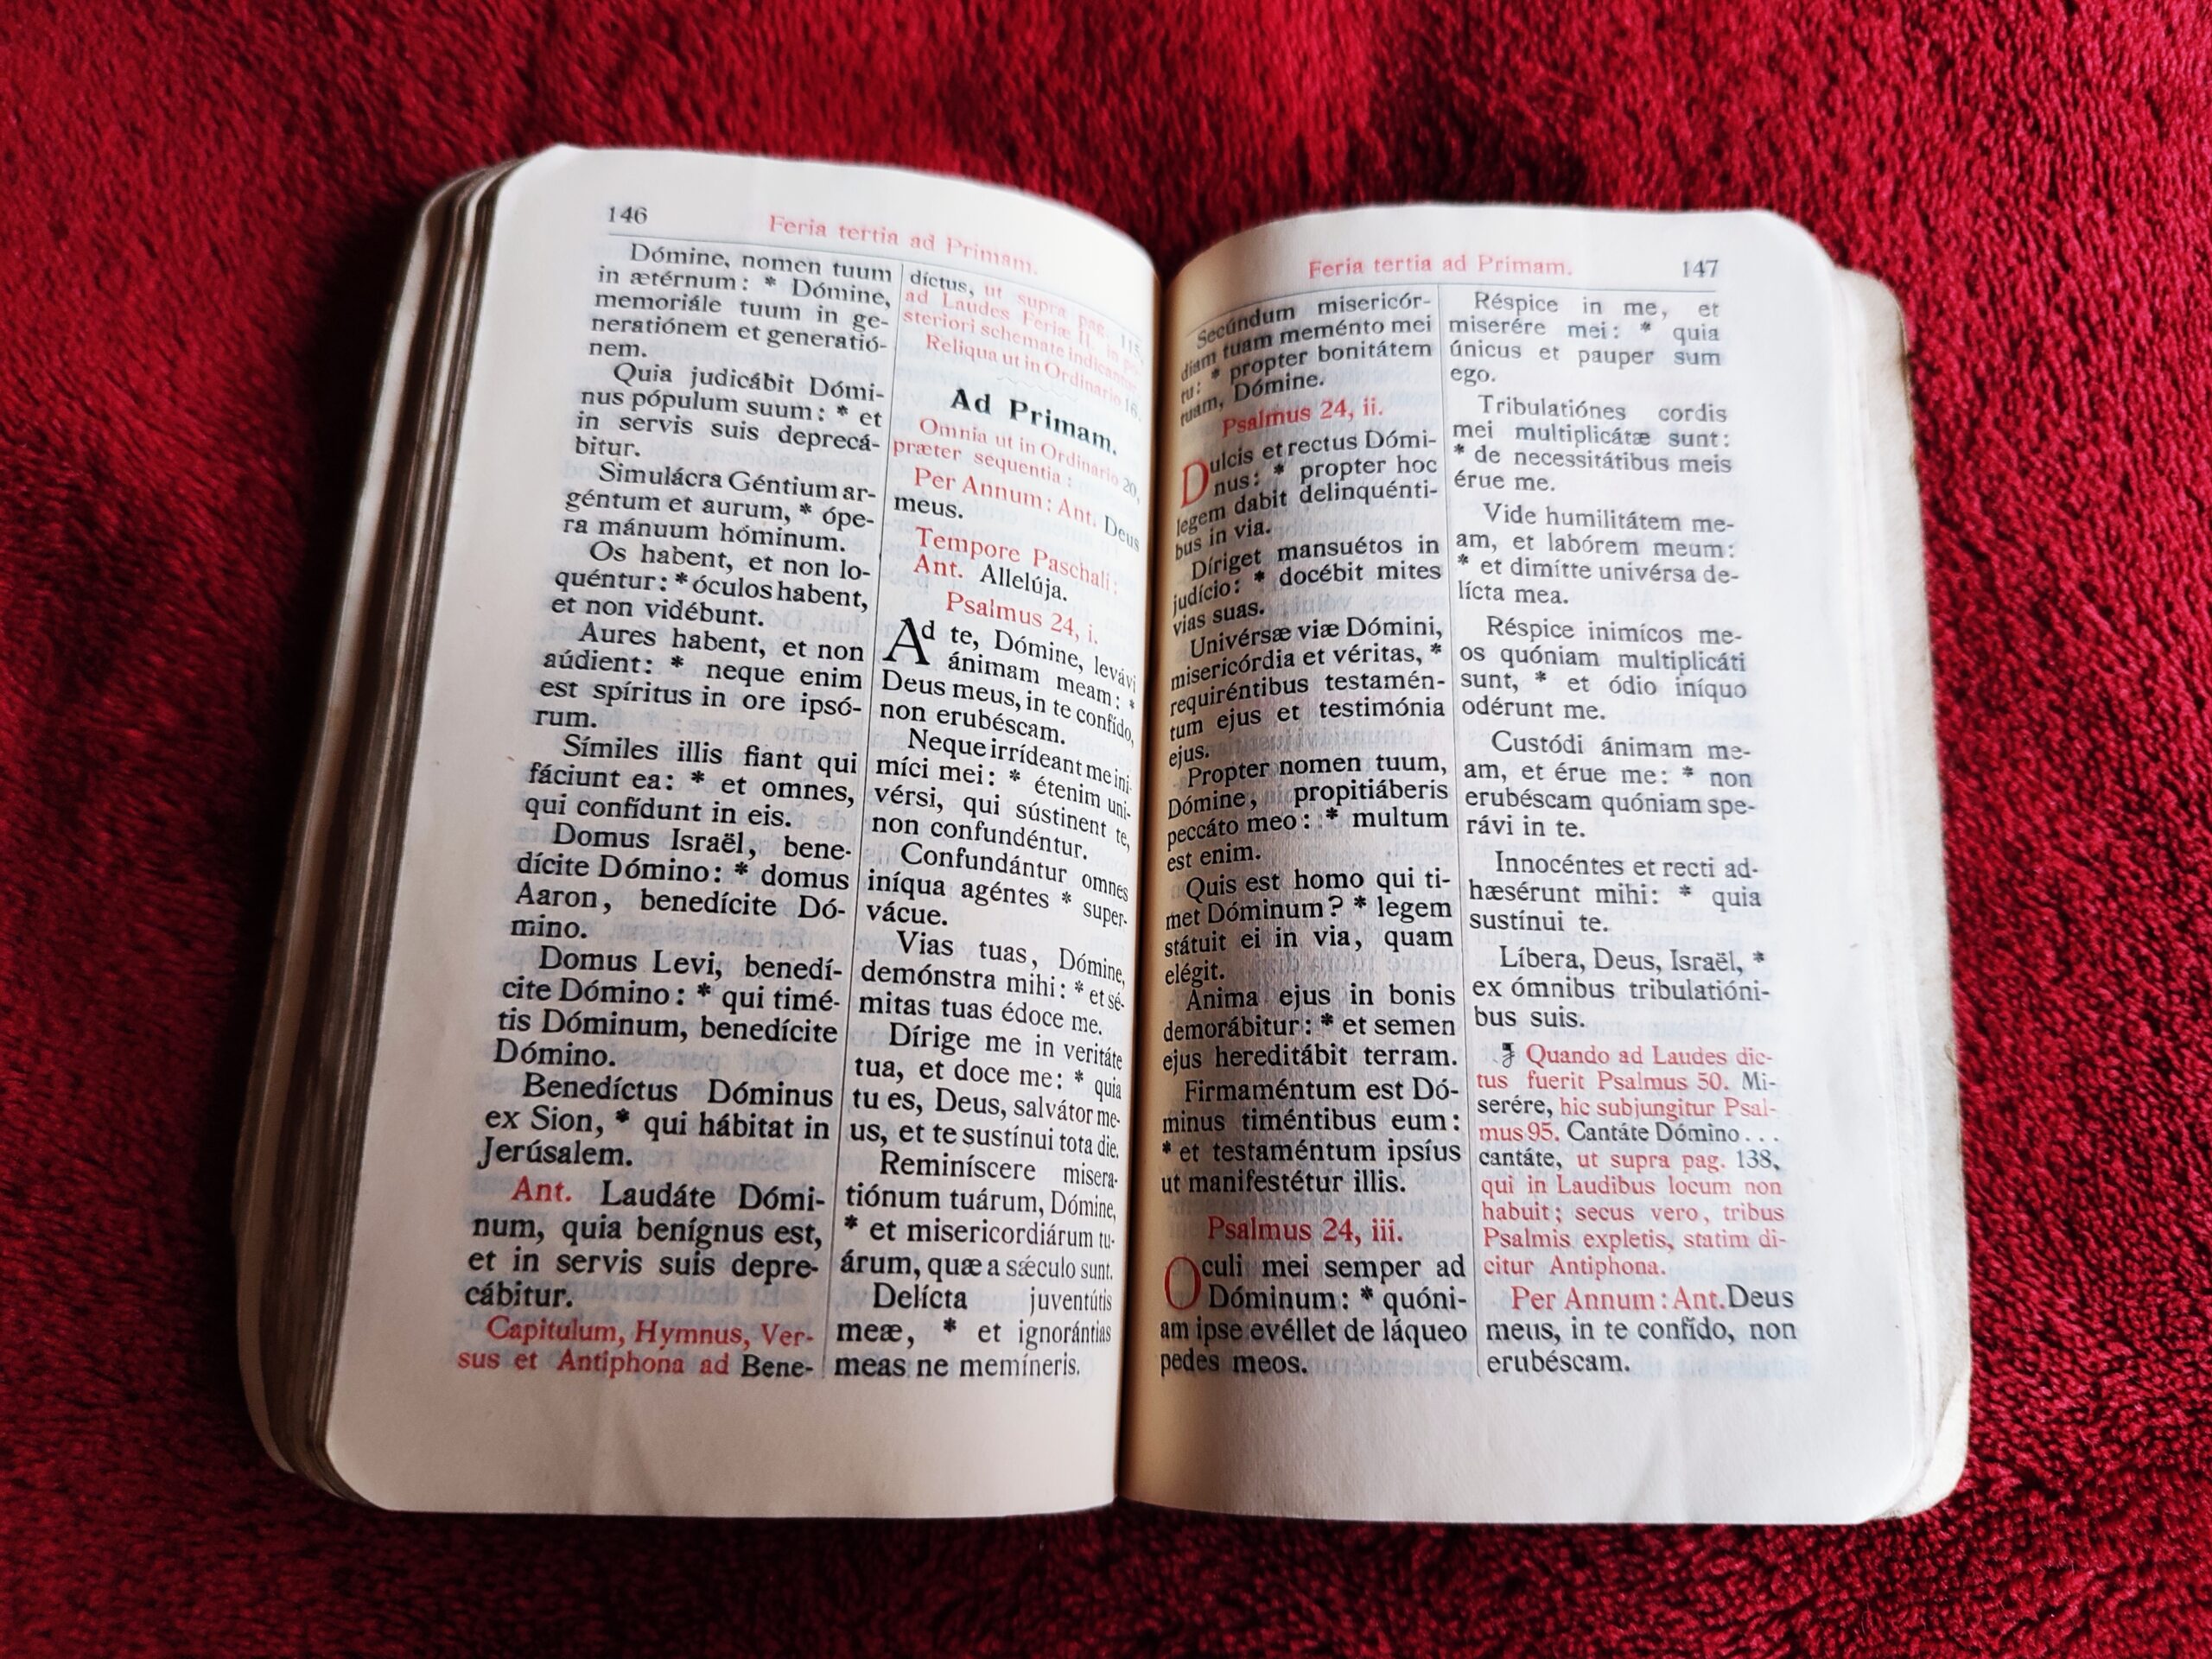 146
Feria tertia ad Primam.
Dómine, nomen tuum
in ætérnum: * Dómine,
memoriále tuum in ge-
neratiónem et generatió-
nem.
Quia judicábit Dómi-
nus pópulum suum: * et
in servis suis deprecá-
bitur.
Simulácra Géntium ar-
géntum et aurum, * ópe-
ra mánuum hóminum.
Os habent, et non lo-
quéntur: * óculos habent,
et non vidébunt.
Aures habent, et non
aúdient: * neque enim
est spíritus in ore ipsó-
rum.
Símiles illis fiant qui
fáciunt ea: * et omnes,
qui confídunt in eis.
Domus Israël, bene-
dícite Dómino: * domus
Aaron, benedícite Dó-
mino.
Domus Levi, benedí-
cite Dómino: * qui timé-
tis Dóminum, benedícite
Dómino.
Benedíctus Dóminus
ex Sion, * qui hábitat in
Jerúsalem.
Ant. Laudáte Dómi-
num, quia benígnus est,
et in servis suis depre-
cábitur.
Capitulum, Hymnus, Ver-
sus et Antiphona ad Bene-
díctus, ut supra pag. 115,
ad Laudes Feriæ II. in po-
steriori schemate indicantur
Reliqua ut in Ordinario 16.
Ad Primam.
Omnia ut in Ordinario 20,
præter sequentia:
Per Annum: Ant. Deus
meus.
Tempore Paschali:
Ant. Allelúja.
Psalmus 24, i.
Ad te, Dómine, levávi
ánimam meam: *
Deus meus, in te confído,
non erubéscam.
Neque irrídeant me ini-
míci mei: * étenim uni-
vérsi, qui sústinent te,
non confundéntur.
Confundántur omnes
iníqua agéntes * super-
vácue.
Vias tuas, Dómine,
demónstra mihi: * et sé-
mitas tuas édoce me.
Dírige me in veritáte
tua, et doce me: * quia
tu es, Deus, salvátor me-
us, et te sustínui tota die.
Reminíscere misera-
tiónum tuárum, Dómine,
* et misericordiárum tu-
árum, quæ a sǽculo sunt.
Delícta juventútis
meæ, * et ignorántias
meas ne memíneris.
Feria tertia ad Primam.
147
Secúndum misericór-
diam tuam meménto mei
tu: * propter bonitátem
tuam, Dómine.
Psalmus 24, ii.
Dulcis et rectus Dómi-
nus: * propter hoc
legem dabit delinquénti-
bus in via.
Díriget mansuétos in
judício: * docébit mites
vias suas.
Univérsæ viæ Dómini,
misericórdia et véritas, *
requiréntibus testamén-
tum ejus et testimónia
ejus.
Propter nomen tuum,
Dómine, propitiáberis
peccáto meo: * multum
est enim.
Quis est homo qui ti-
met Dóminum? * legem
státuit ei in via, quam
elégit.
Anima ejus in bonis
demorábitur: * et semen
ejus hereditábit terram.
Firmaméntum est Dó-
minus timéntibus eum:
* et testaméntum ipsíus
ut manifestétur illis.
Psalmus 24, iii.
Oculi mei semper ad
Dóminum: * quóni-
am ipse evéllet de láqueo
pedes meos.
Réspice in me, et
miserére mei: * quia
únicus et pauper sum
ego.
Tribulatiónes cordis
mei multiplicátæ sunt:
* de necessitátibus meis
érue me.
Vide humilitátem me-
am, et labórem meum:
* et dimítte univérsa de-
lícta mea.
Réspice inimícos me-
os quóniam multiplicáti
sunt, * et ódio iníquo
odérunt me.
Custódi ánimam me-
am, et érue me: * non
erubéscam quóniam spe-
rávi in te.
Innocéntes et recti ad-
hæsérunt mihi: * quia
sustínui te.
Líbera, Deus, Israël, *
ex ómnibus tribulatióni-
bus suis.
Quando ad Laudes dic-
tus fuerit Psalmus 50. Mi-
serére, hic subjungitur Psal-
mus 95. Cantáte Dómino...
cantáte, ut supra pag. 138,
qui in Laudibus locum non
habuit; secus vero, tribus
Psalmis expletis, statim di-
citur Antiphona.
Per Annum: Ant. Deus
meus, in te confído, non
erubéscam.